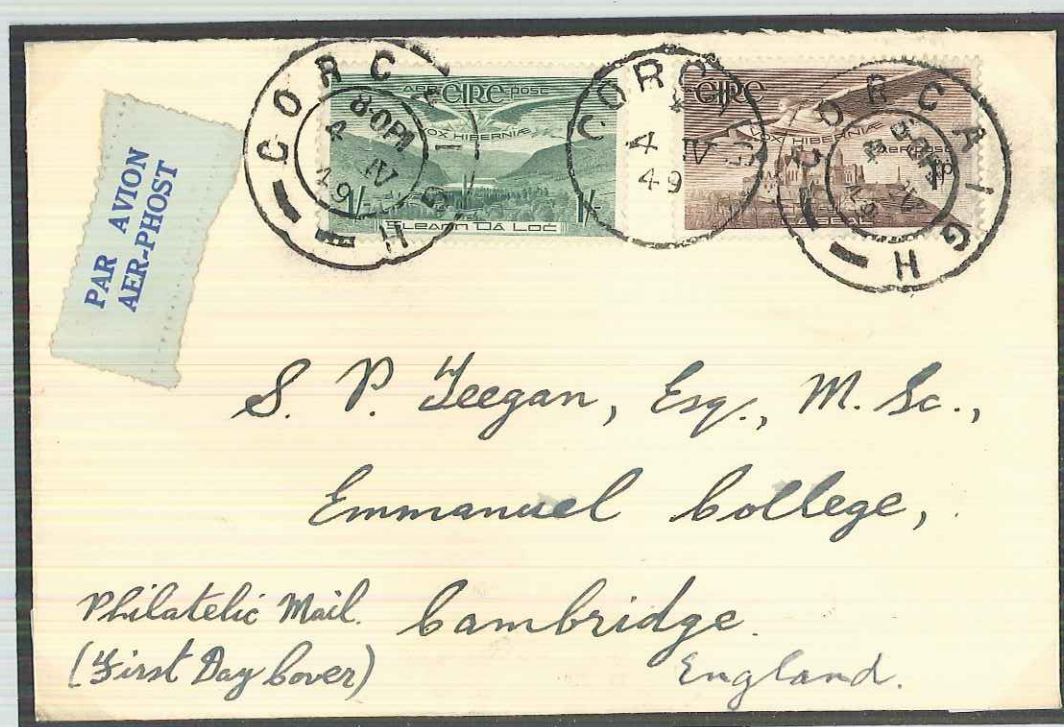 PAR AVION
AER-PHOST
CORCAIGH
8.0PM
4 IV
49
AER EIRE POST
VOX HIBERNIÆ
1/- 1/-
Gleann Dá Loċ
CORC
4 IV
49
EIRE
VOX HIBERNIÆ
AERPOST
CORCAIGH
4 IV
49
S. P. Teegan, Esq., M. Sc.,
Emmanuel College,
Cambridge.
England.
Philatelic Mail.
(First Day Cover)